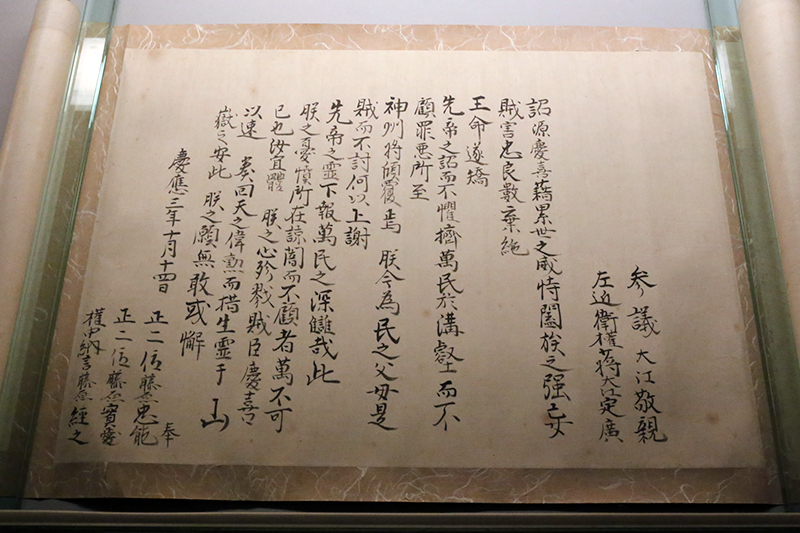 参議大江敬親
左近衛權少将大江定廣
詔源慶喜藉累世之威恃闔族之强妄
賊害忠良數棄絶
王命遂矯
先帝之詔而不懼擠萬民於溝壑而不
顧罪悪所至
神州将傾覆焉 朕今為民之父母是
賊而不討何以上謝
先帝之霊下報萬民之深讎哉此
朕之憂憤所在諒闇而不顧者萬不可
已也汝宜體 朕之心殄戮賊臣慶喜
以速 奏回天之偉勲而措生霊于山
嶽之安此 朕之願無敢或懈
慶應三年十月十四日
正二位藤原忠能 奉
正二位藤原實愛
權中納言藤原經之